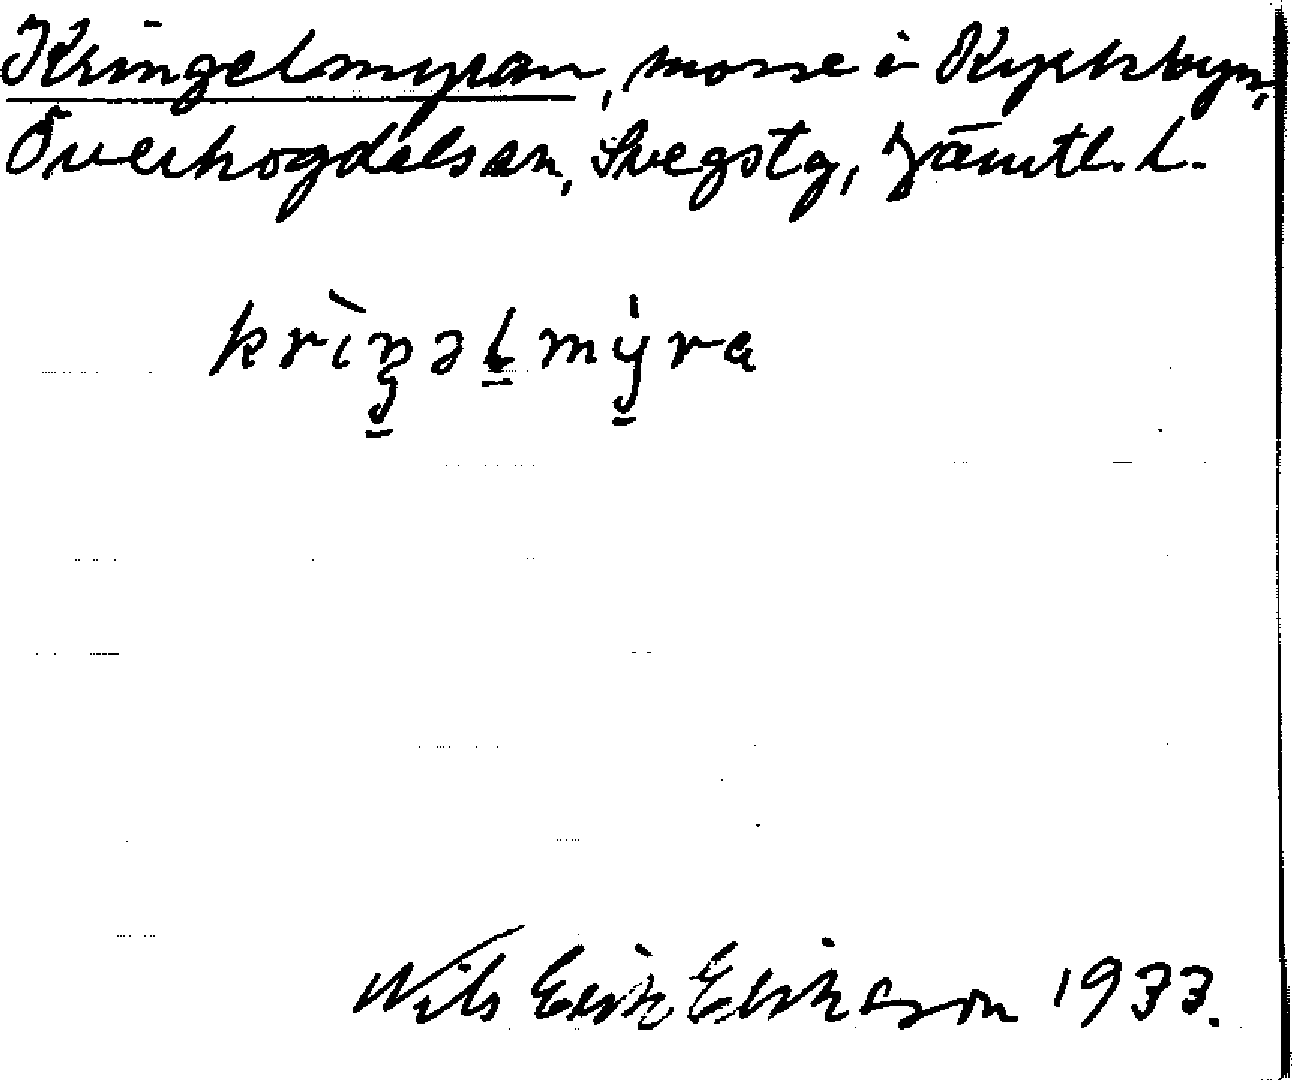 Kringelmyran, mosse i Kyrkbyn,
Överhogdals sn, Svegs tg, Jämtl. l.
krìŋəlmy̌ra
Nils Erik Eriksson 1933.